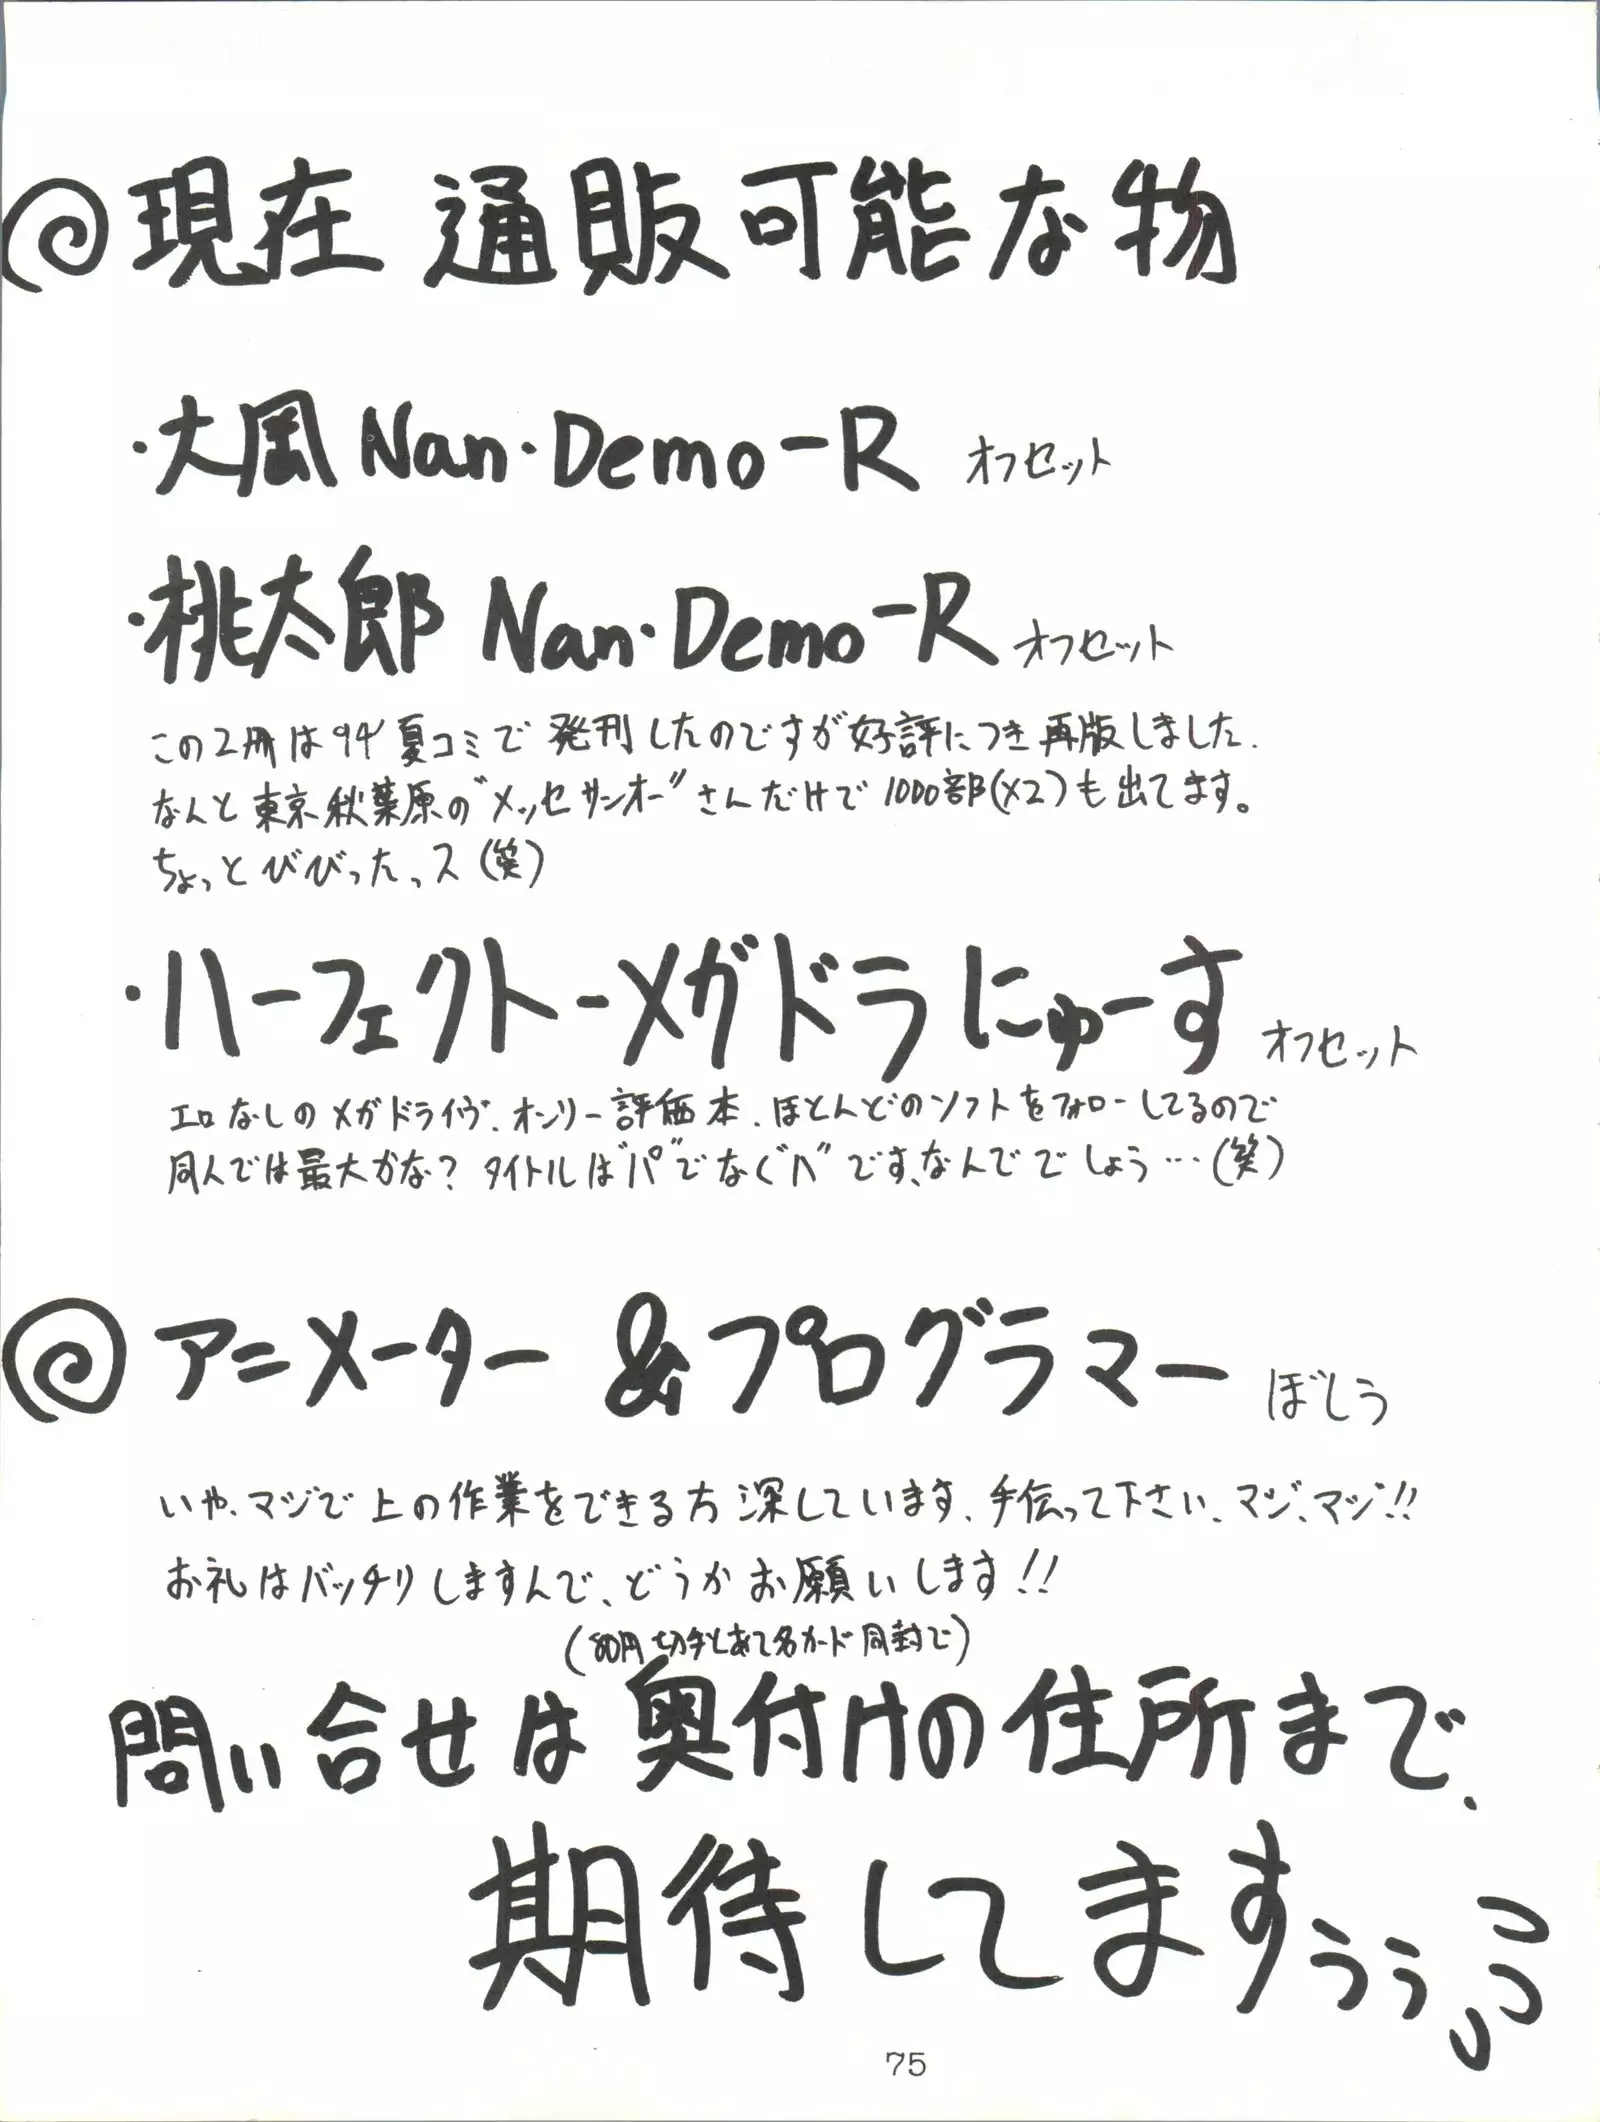 現在 通販可能な物
・大凮 Nan・Demo-R オフセット
・桃太郎 Nan・Demo-R オフセット
この2冊は94'夏コミで発刊したのですが好評につき再版しました.
なんと東京秋葉原の"メッセサンオー"さんだけで1000部(×2)も出てます。
ちょっとびびったっス(笑)
・ハーフェクト-メガドラにゅーす オフセット
エロなしのメガドライヴ.オンリー評価本.ほとんどのソフトをフォローしてるので
同人では最大かな?タイトルは"パ"でなく"ハ"です、なんででしょう…(笑)
アニメーター&プログラマー ぼしう
いや、マジで上の作業をできる方深しています.手伝って下さい、マジ、マジ!!
お礼はバッチリしますんで、どうかお願いします!!
(80円切手とあて名カード同封で)
問い合せは奥付けの住所まで.
期待してますぅぅ
75